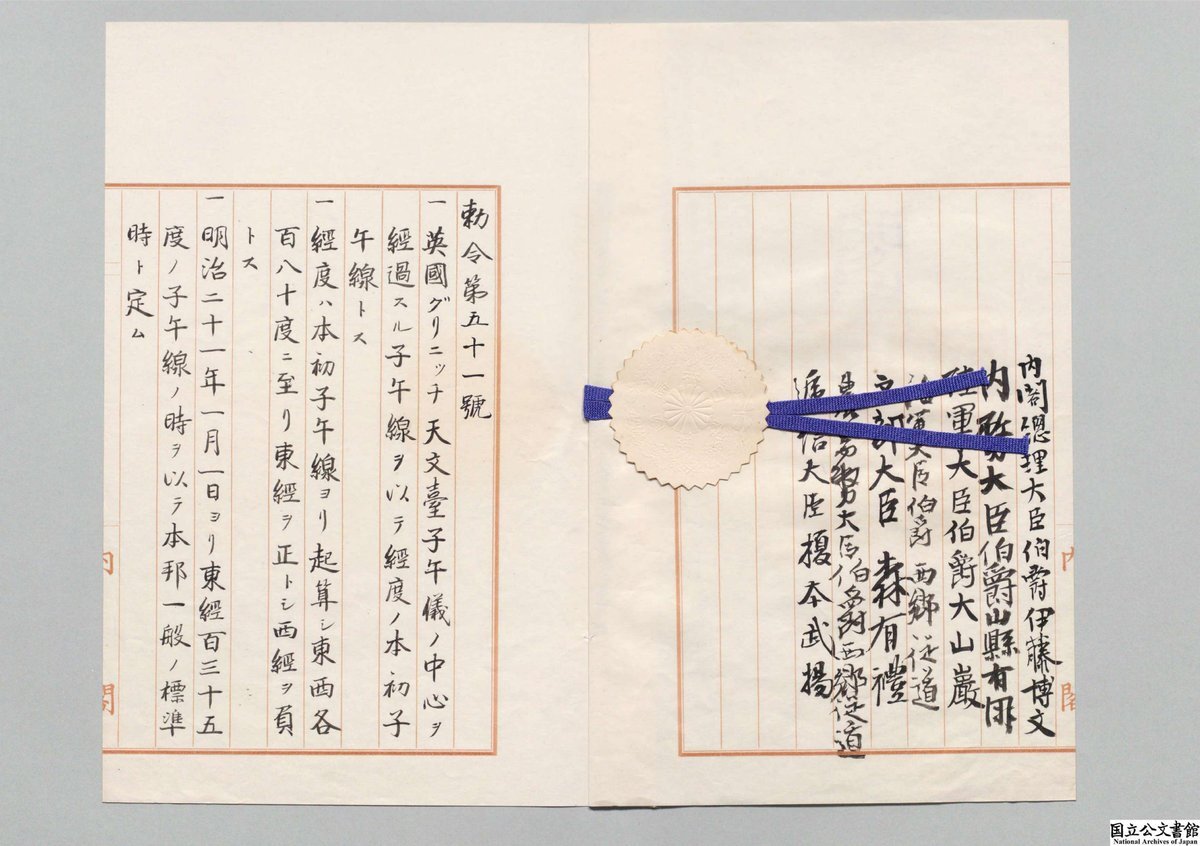 内閣總理大臣伯爵伊藤博文
内務大臣伯爵山縣有朋
陸軍大臣伯爵大山巌
海軍大臣伯爵西郷従道
文部大臣 森有禮
農商務大臣伯爵西郷従道
逓信大臣榎本武揚
内閣
勅令第五十一號
一英國グリニッチ天文臺子午儀ノ中心ヲ
經過スル子午線ヲ以テ經度ノ本初子
午線トス
一經度ハ本初子午線ヨリ起算シ東西各
百八十度ニ至リ東經ヲ正トシ西經ヲ負
トス
一明治二十一年一月一日ヨリ東經百三十五
度ノ子午線ノ時ヲ以テ本邦一般ノ標準
時ト定ム
内閣
国立公文書館
National Archives of Japan